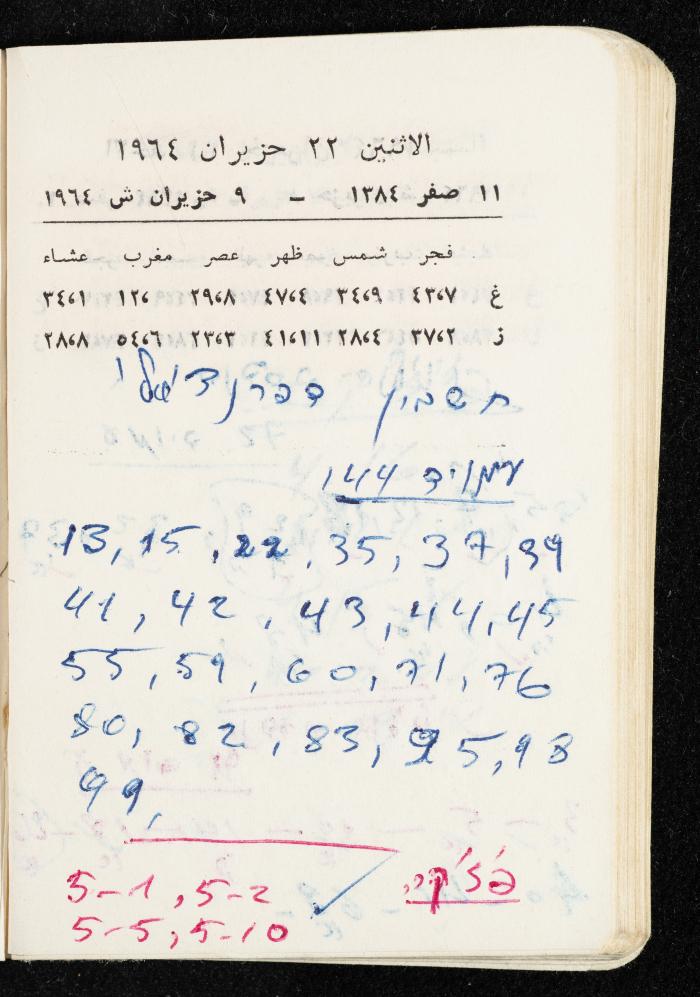 الاثنين ٢٢ حزيران ١٩٦٤
١١ صفر ١٣٨٤ – ٩ حزيران ش ١٩٦٤
فجر شمس ظهر عصر مغرب عشاء
غ ٤٣،٧ ٣٤،٩ ٤٧،٤ ٢٩،٨ ١٢، ٣٤،١
ز ٣٧،٢ ٢٨،٤ ٤١،١١ ٢٣،٣ ٥٤،٦ ٢٨،٨
חשבון
144
13, 15, 22, 35, 37, 39
41, 42, 43, 44, 45
55, 59, 60, 71, 76
80, 82, 83, 95, 98
99,
5-1, 5-2
5-5, 5-10